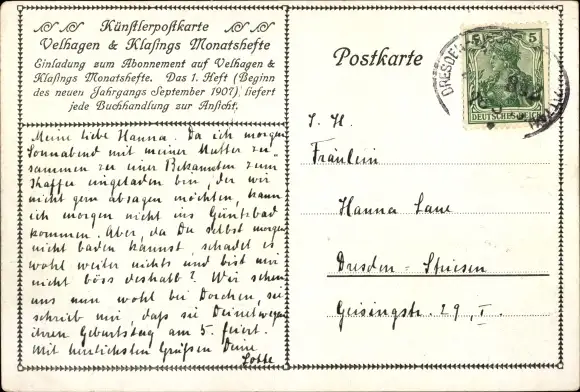 Künstlerpostkarte
Velhagen & Klasings Monatshefte
Einladung zum Abonnement auf Velhagen &
Klasings Monatshefte. Das 1. Heft (Beginn
des neuen Jahrgangs September 1907) liefert
jede Buchhandlung zur Ansicht.
Meine liebe Hanna. Da ich morgen
Sonnabend mit meiner Mutter zu-
sammen zu einer Bekannten zum
Kaffee eingeladen bin, der wir
nicht gern absagen möchten, kann
ich morgen nicht ins Güntzbad
kommen. Aber, da Du selbst morgen
nicht baden kannst, schadet es
wohl weiter nichts und bist mir
nicht böss deshalb? Wir sehen
uns nun wohl bei Dorchen, sie
schrieb mir, daß sie Deinetwegen
ihren Geburtstag am 5. feiert.
Mit herzlichsten Grüßen Deine
Lotte
Postkarte
5
DEUTSCHES REICH
DRESDEN
S. H.
Fräulein
Hanna Lane
Dresden-Striesen
Geisingstr. 29, I.